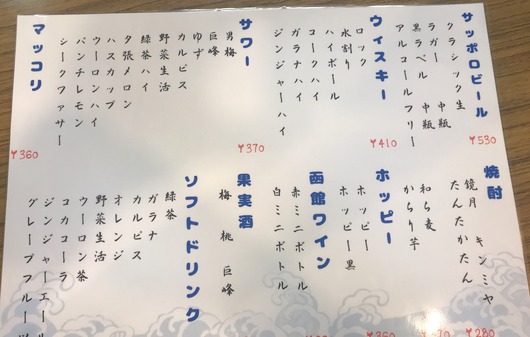 サッポロビール
クラシック生
ラガー 中瓶
黒ラベル 中瓶
アルコールフリー
¥530
ウィスキー
ロック
水割り
ハイボール
コークハイ
ガラナハイ
ジンジャーハイ
¥410
サワー
男梅
巨峰
ゆず
カルピス
野菜生活
緑茶ハイ
夕張メロン
ハスカップ
ウーロンハイ
パンチレモン
シークァサー
¥370
マッコリ
¥360
焼酎
鏡月 キンミヤ
たんたかたん
¥280
和ら麦
からり芋
ホッピー
ホッピー
ホッピー黒
函館ワイン
赤ミニボトル
白ミニボトル
果実酒
梅 桃 巨峰
ソフトドリンク
緑茶
ガラナ
カルピス
オレンジ
野菜生活
ウーロン茶
コカコーラ
ジンジャーエール
グレープフルーツ